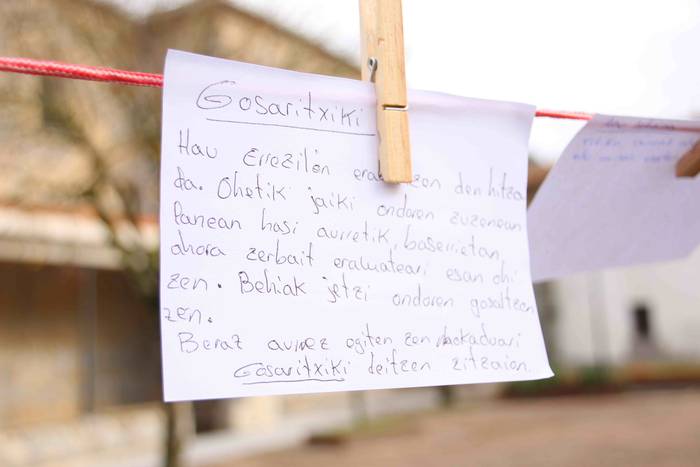 Gosaritxiki
Hau Errezilen erabiltzen den hitza
da. Ohetik jaiki ondoren zuzenean
lanean hasi aurretik, baserrietan,
ahora zerbait eramateari esan ohi
zen. Behiak jetzi ondoren gosaltzen
zen.
Beraz aurrez egiten zen mokaduari
Gosaritxiki deitzen zitzaion.